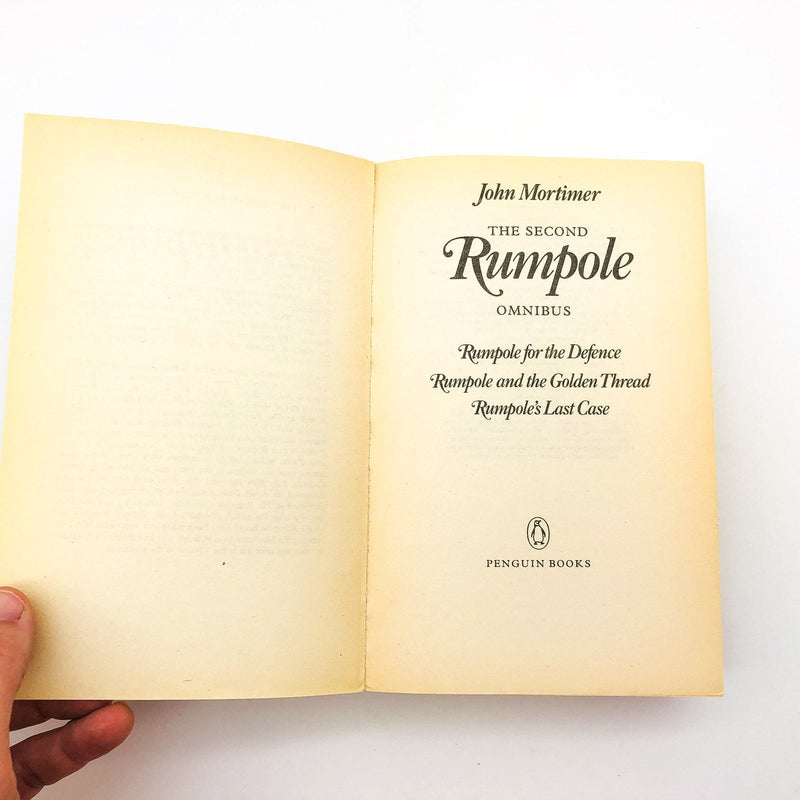 John Mortimer
THE SECOND
Rumpole
OMNIBUS
Rumpole for the Defence
Rumpole and the Golden Thread
Rumpole's Last Case
PENGUIN BOOKS